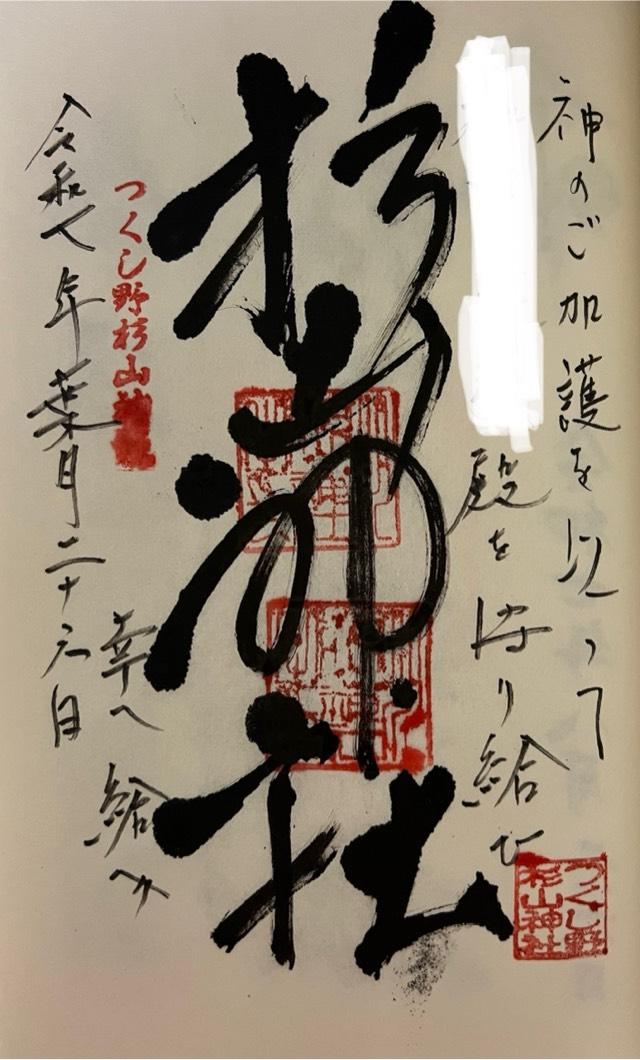 神のご加護を以って
殿を守り給ひ
杉山神社
幸へ給へ
つくし野杉山神社
令和七年葉月二十六日
つくし野
杉山神社